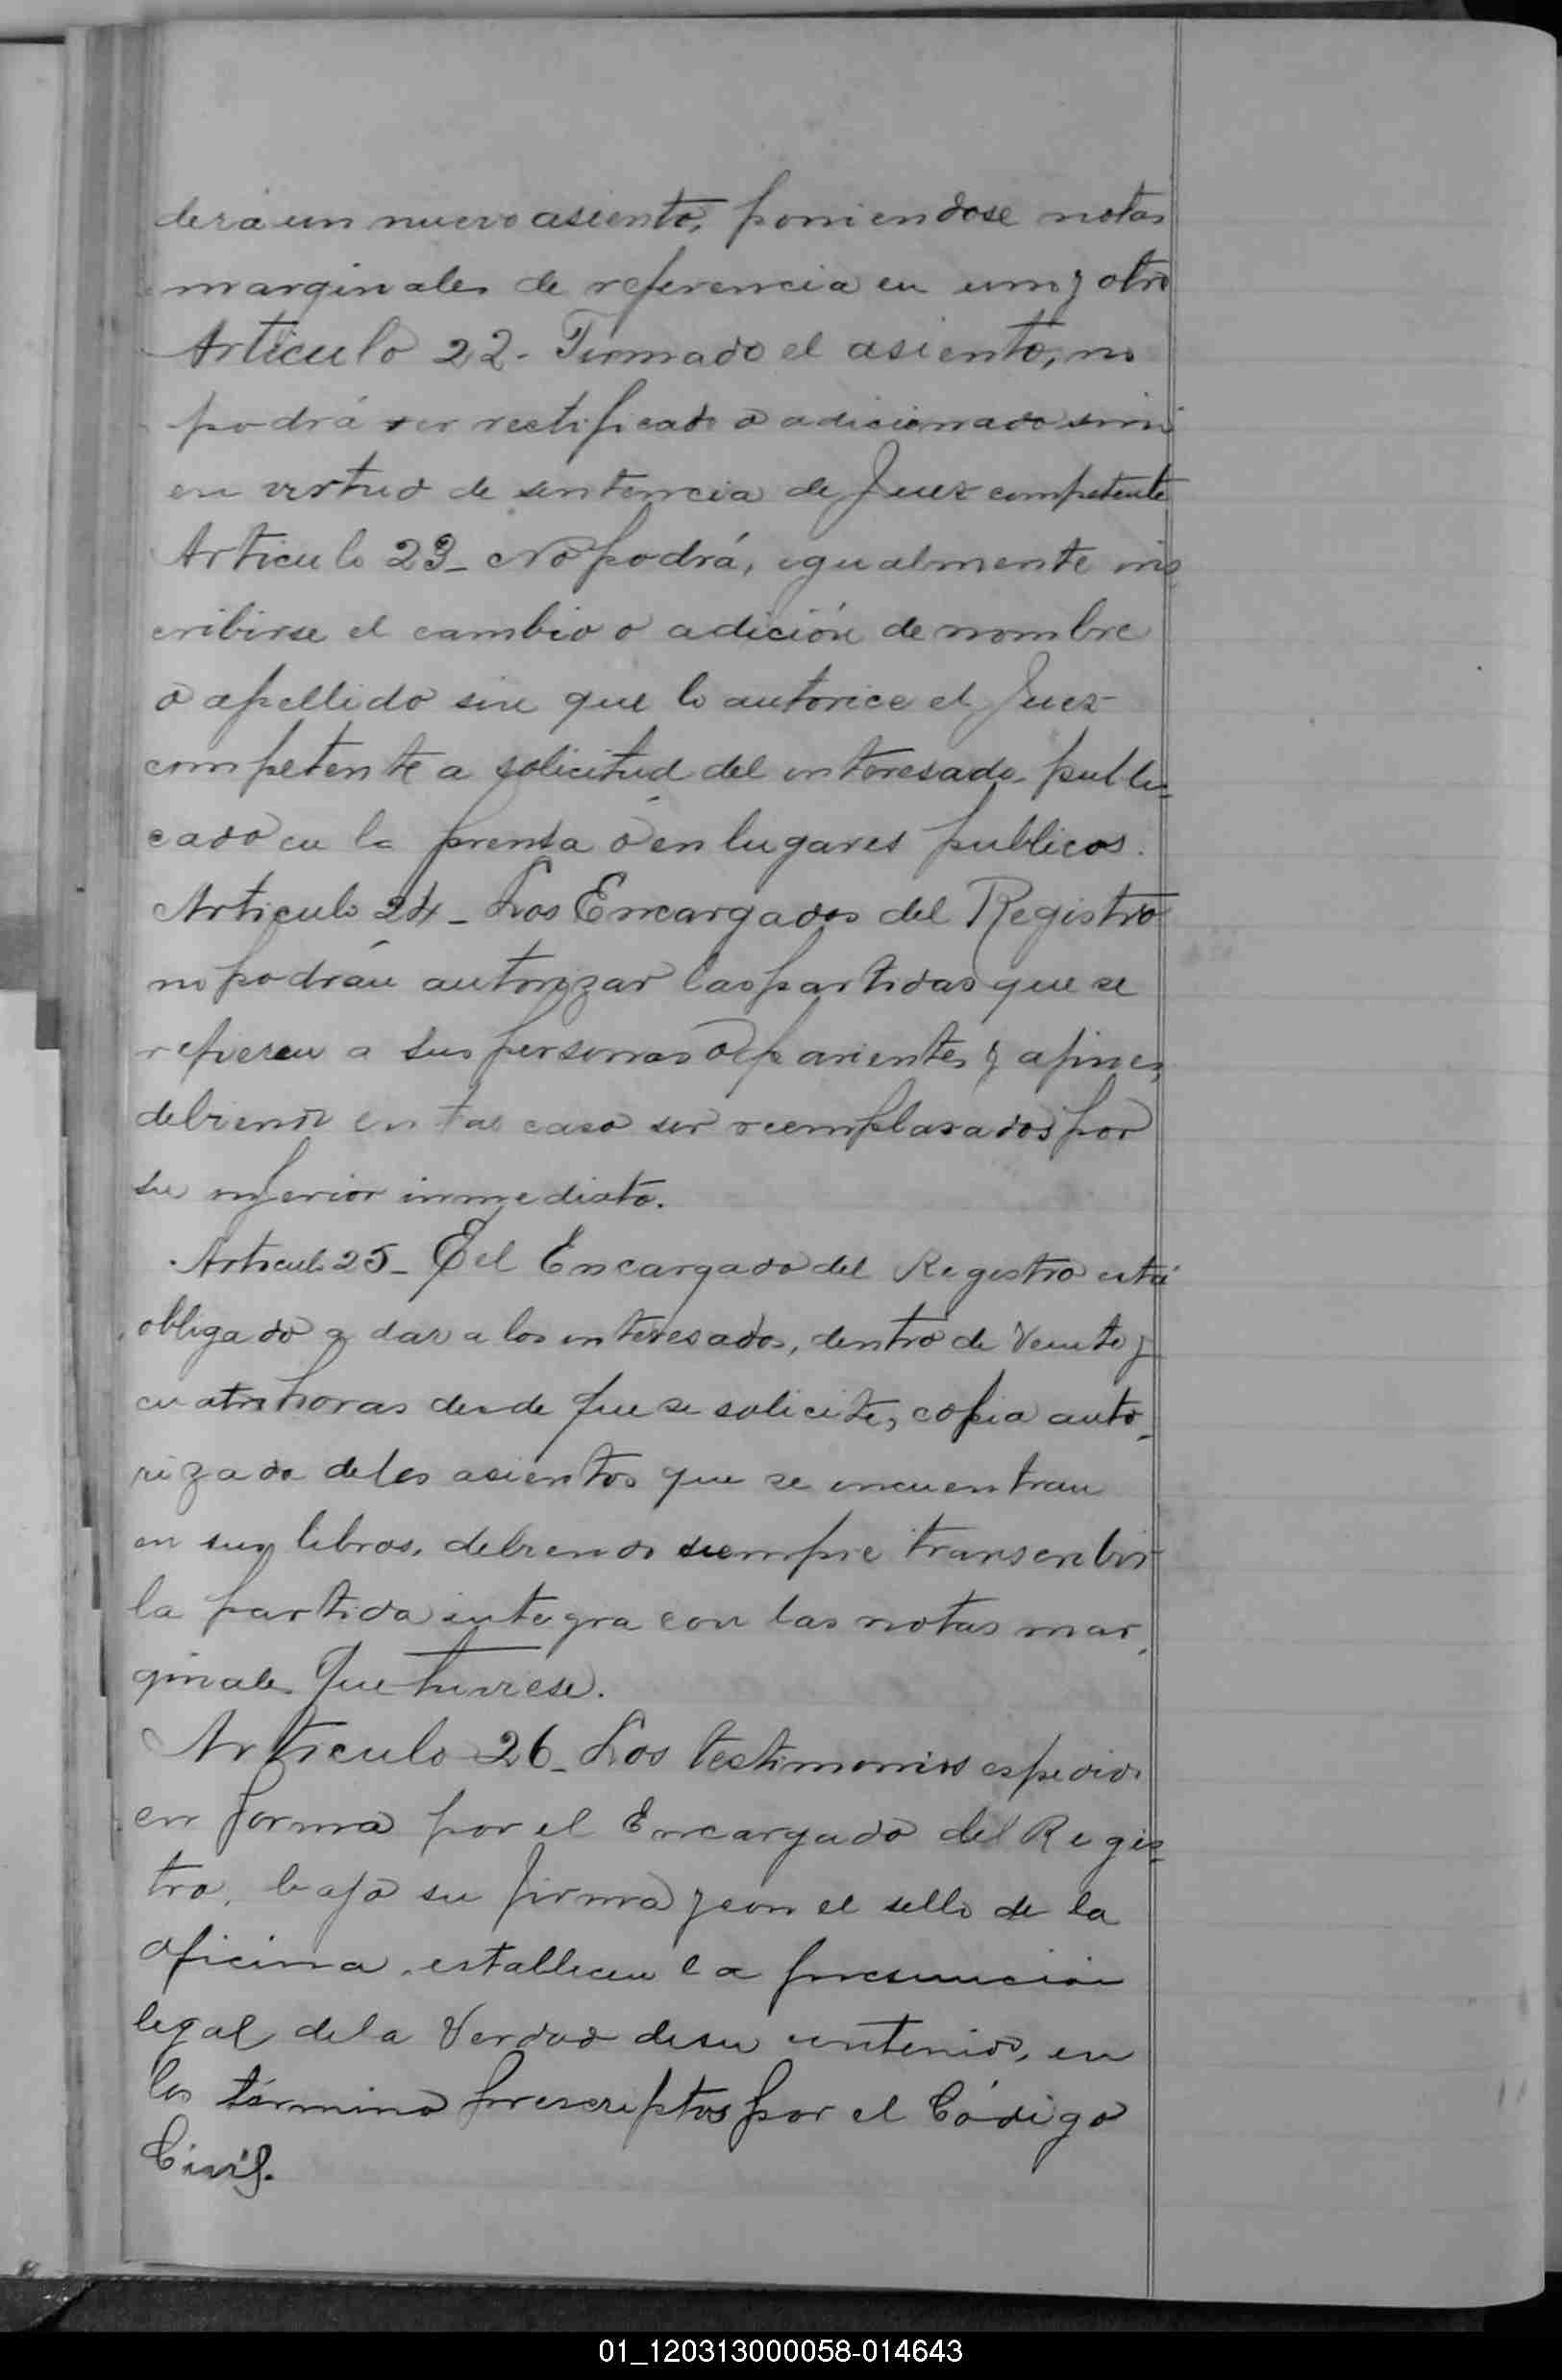 derá un nuevo asiento, poniendose notas
marginales de referencia en uno y otro
Articulo 22- Firmado el asiento, no
podrá ser rectificado o adicionado sino
en virtud de sentencia de Juez competente
Articulo 23_ No podrá, igualmente ins_
cribirse el cambio o adición de nombre
o apellido sin que lo autorice el Juez
competente a solicitud del interesado publi_
cado en la prensa o en lugares publicos.
Articulo 24_ Los Encargados del Registro
no podrán autorizar las partidas que se
refieren a sus personas o parientes y afines,
debiendo en tal caso ser reemplasados por
su inferior inmediato.
Articulo 25_ El Encargado del Registro está
obligado a dar a los interesados, dentro de Veinte y
cuatro horas desde que se solicite, copia auto_
rizada de los asientos que se encuentran
en sus libros, debiendo siempre transcribir
la partida integra con las notas mar_
ginales que tuviese.
Articulo 26_ Los testimonios espedidos
en forma por el Encargado del Regis_
tro, bajo su firma y con el sello de la
oficina, establecen la presuncion
legal de la Verdad de su contenido, en
los términos prescriptos por el Código
Civil.
01_120313000058-014643